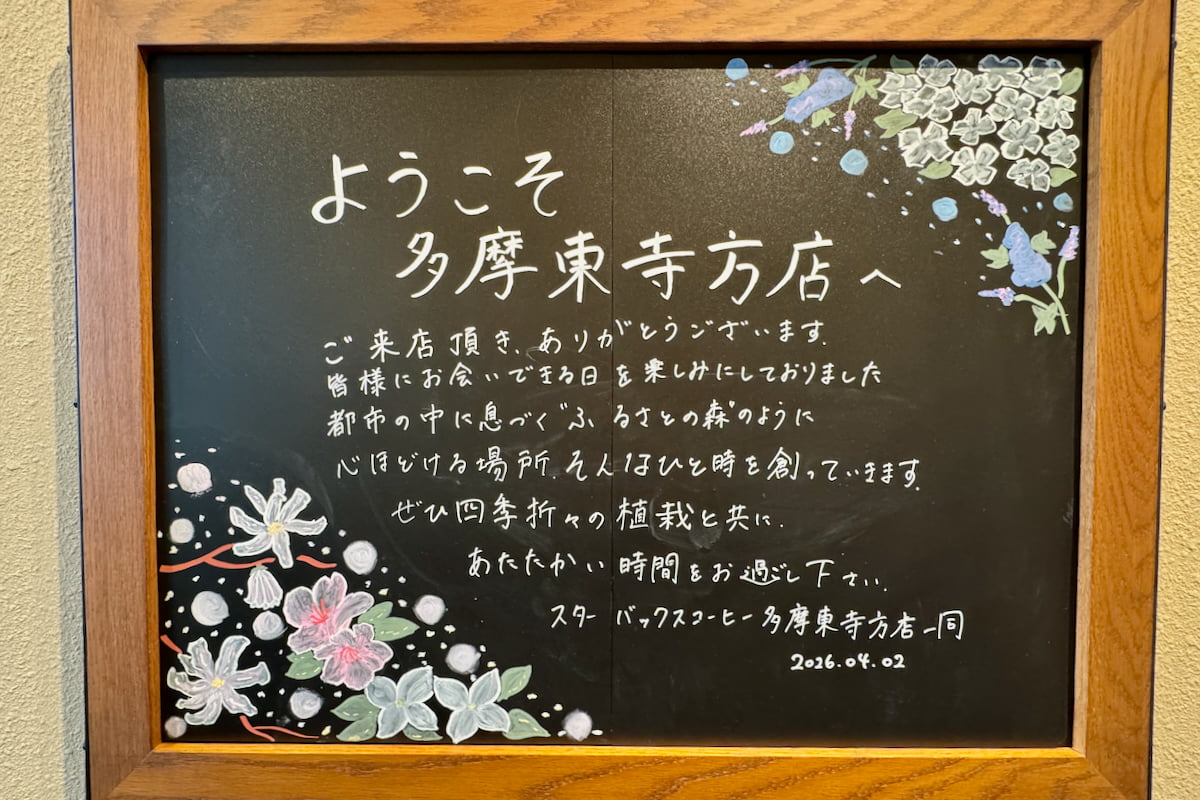 ようこそ
多摩東寺方店へ
ご来店頂き、ありがとうございます。
皆様にお会いできる日を楽しみにしておりました
都市の中に息づく"ふるさとの森"のように
心ほどける場所、そんなひと時を創っていきます。
ぜひ四季折々の植栽と共に、
あたたかい時間をお過ごし下さい。
スターバックスコーヒー多摩東寺方店一同
2026.04.02